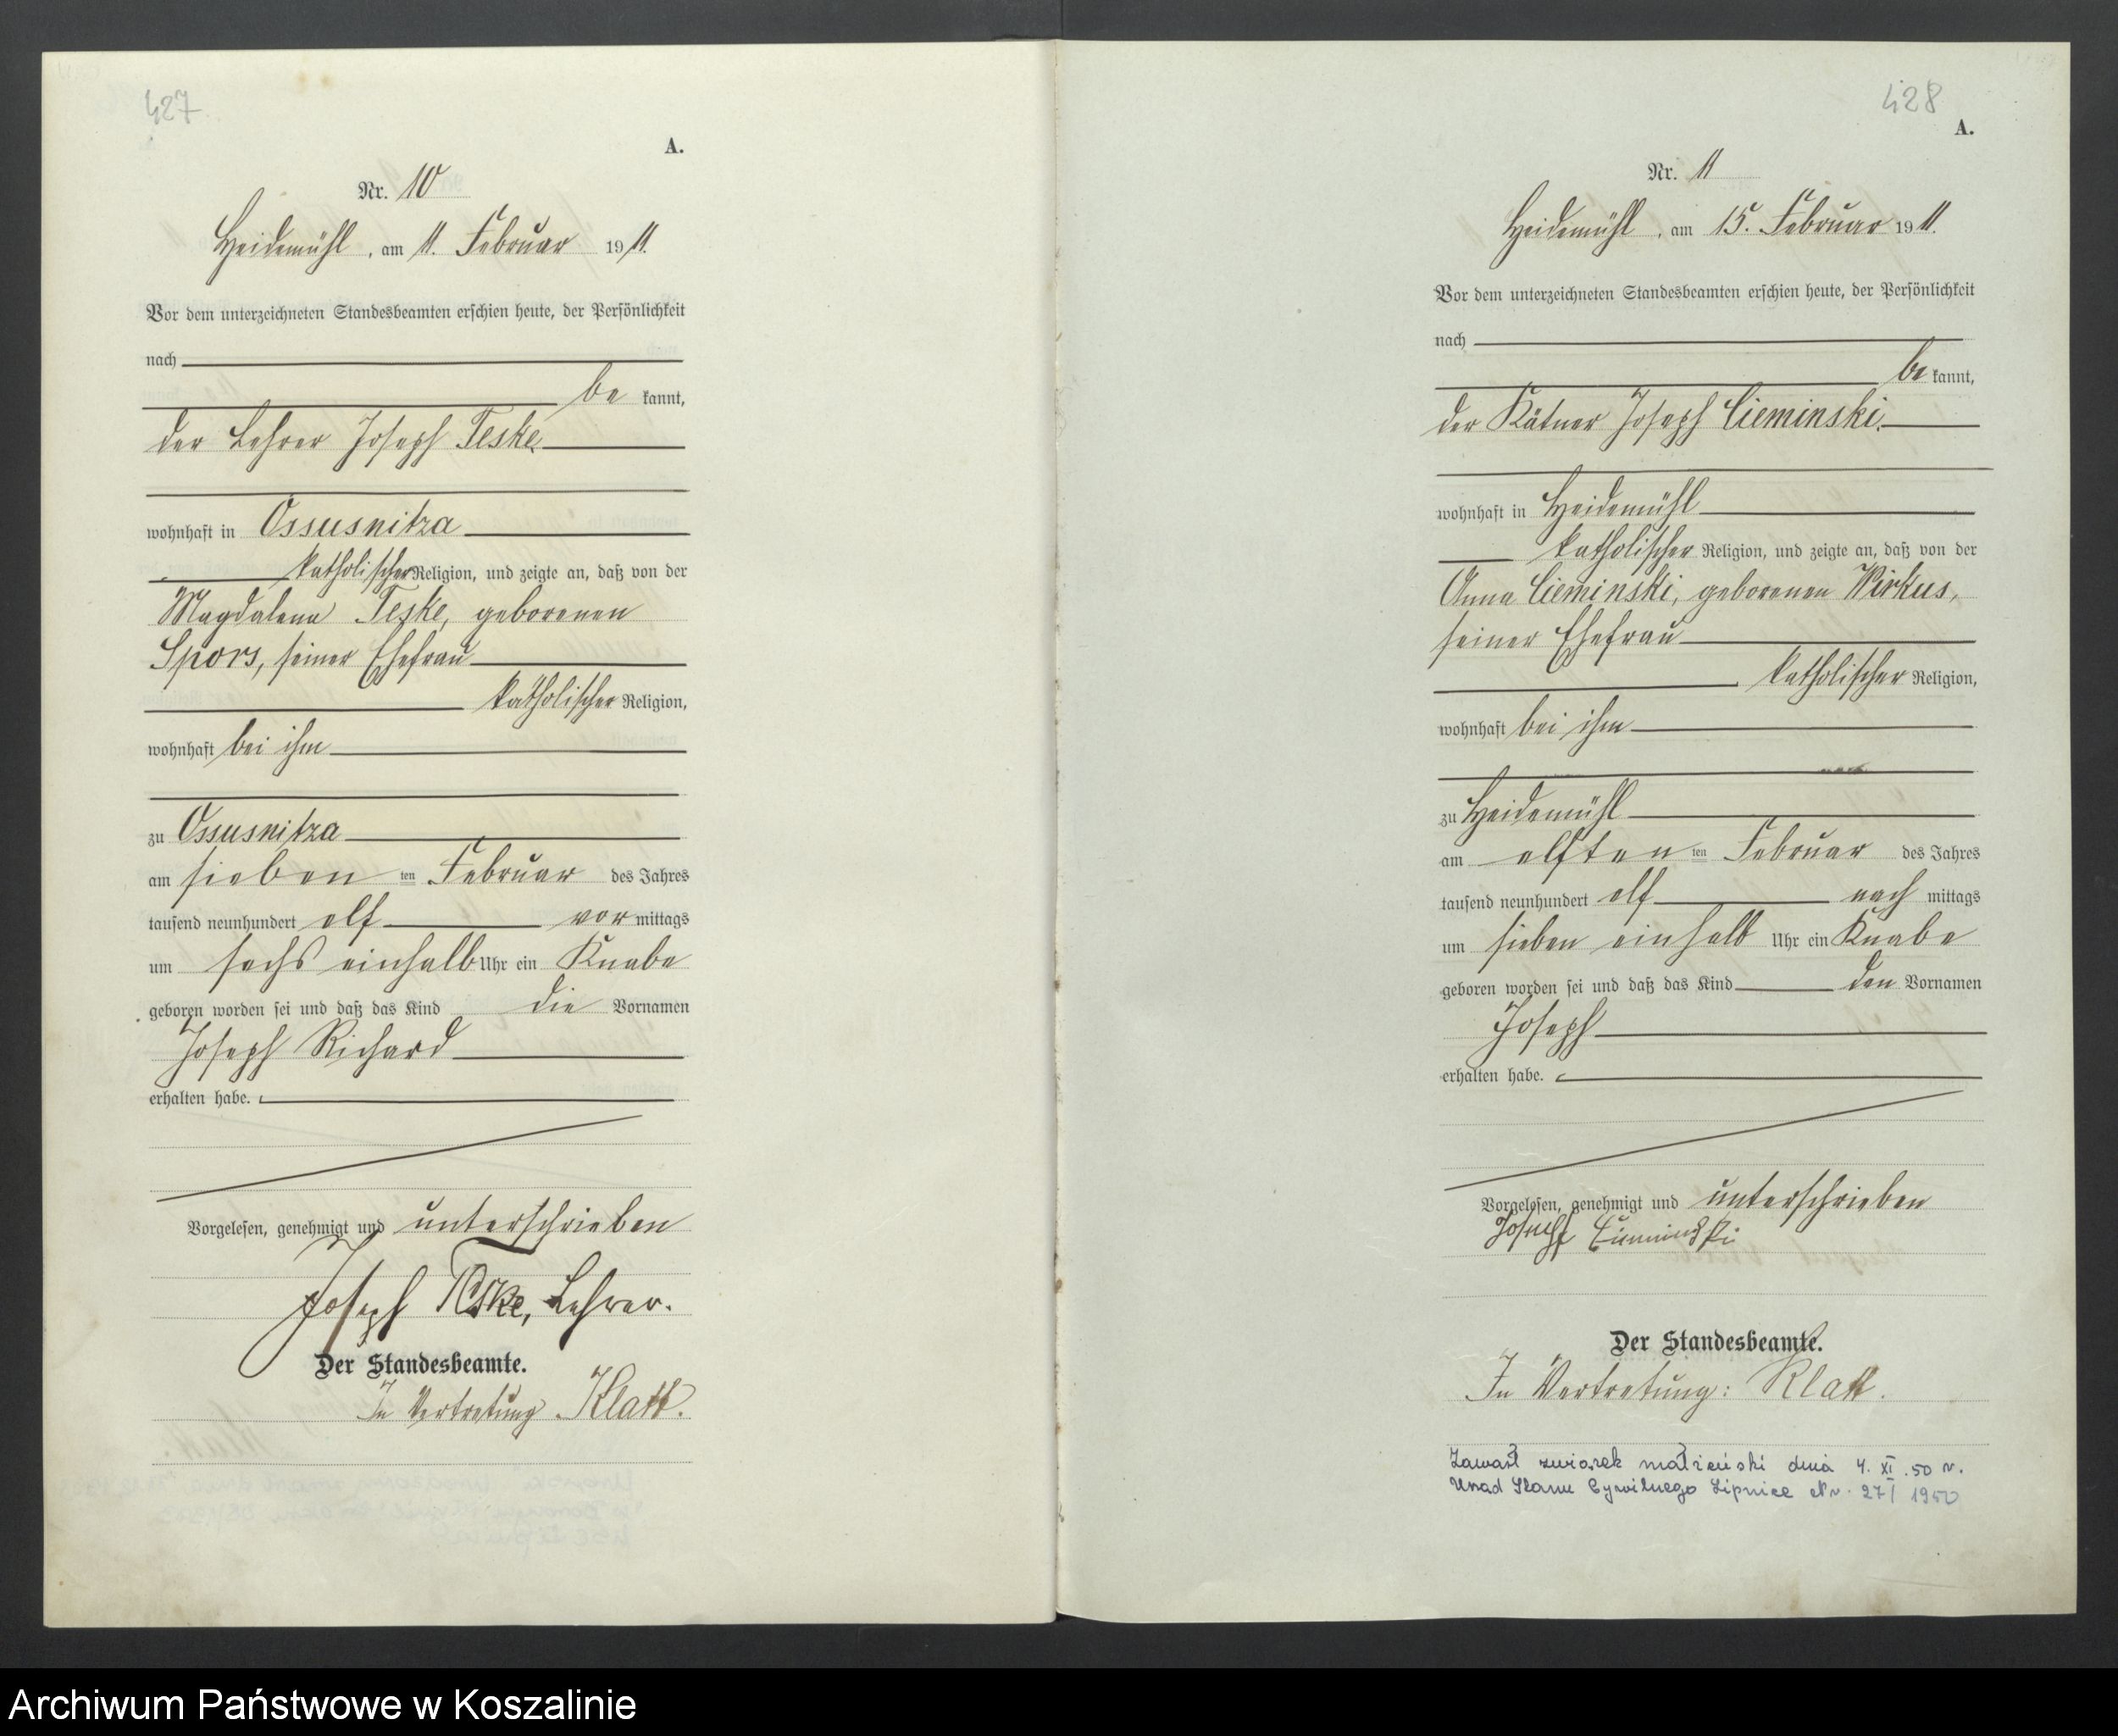 427
A.
Nr. 10
Heidemühl, am 11. Februar 1911.
Vor dem unterzeichneten Standesbeamten erschien heute, der Persönlichkeit
nach
be kannt,
der Lehrer Joseph Teske
wohnhaft in Ossusnitza
katholischer Religion, und zeigte an, daß von der
Magdalena Teske, geborenen
Spors, seiner Ehefrau
katholischer Religion,
wohnhaft bei ihm
zu Ossusnitza
am sieben ten Februar des Jahres
tausend neunhundert elf vor mittags
um sechs einhalb Uhr ein Knabe
geboren worden sei und daß das Kind die Vornamen
Joseph Richard
erhalten habe.
Vorgelesen, genehmigt und unterschrieben
Joseph Teske, Lehrer.
Der Standesbeamte.
In Vertretung Klatt.
428
A.
Nr. 11
Heidemühl, am 15. Februar 1911.
Vor dem unterzeichneten Standesbeamten erschien heute, der Persönlichkeit
nach
be kannt,
der Kätner Joseph Cieminski.
wohnhaft in Heidemühl
katholischer Religion, und zeigte an, daß von der
Anna Cieminski, geborenen Wirkus,
seiner Ehefrau
katholischer Religion,
wohnhaft bei ihm
zu Heidemühl
am elften ten Februar des Jahres
tausend neunhundert elf nach mittags
um sieben einhalb Uhr ein Knabe
geboren worden sei und daß das Kind den Vornamen
Joseph
erhalten habe.
Vorgelesen, genehmigt und unterschrieben
Joseph Cieminski
Der Standesbeamte.
In Vertretung: Klatt.
Zawarł związek małżeński dnia 4. XI. 50 r.
Urząd Stanu Cywilnego Lipnice Nr. 27/1950
Archiwum Państwowe w Koszalinie